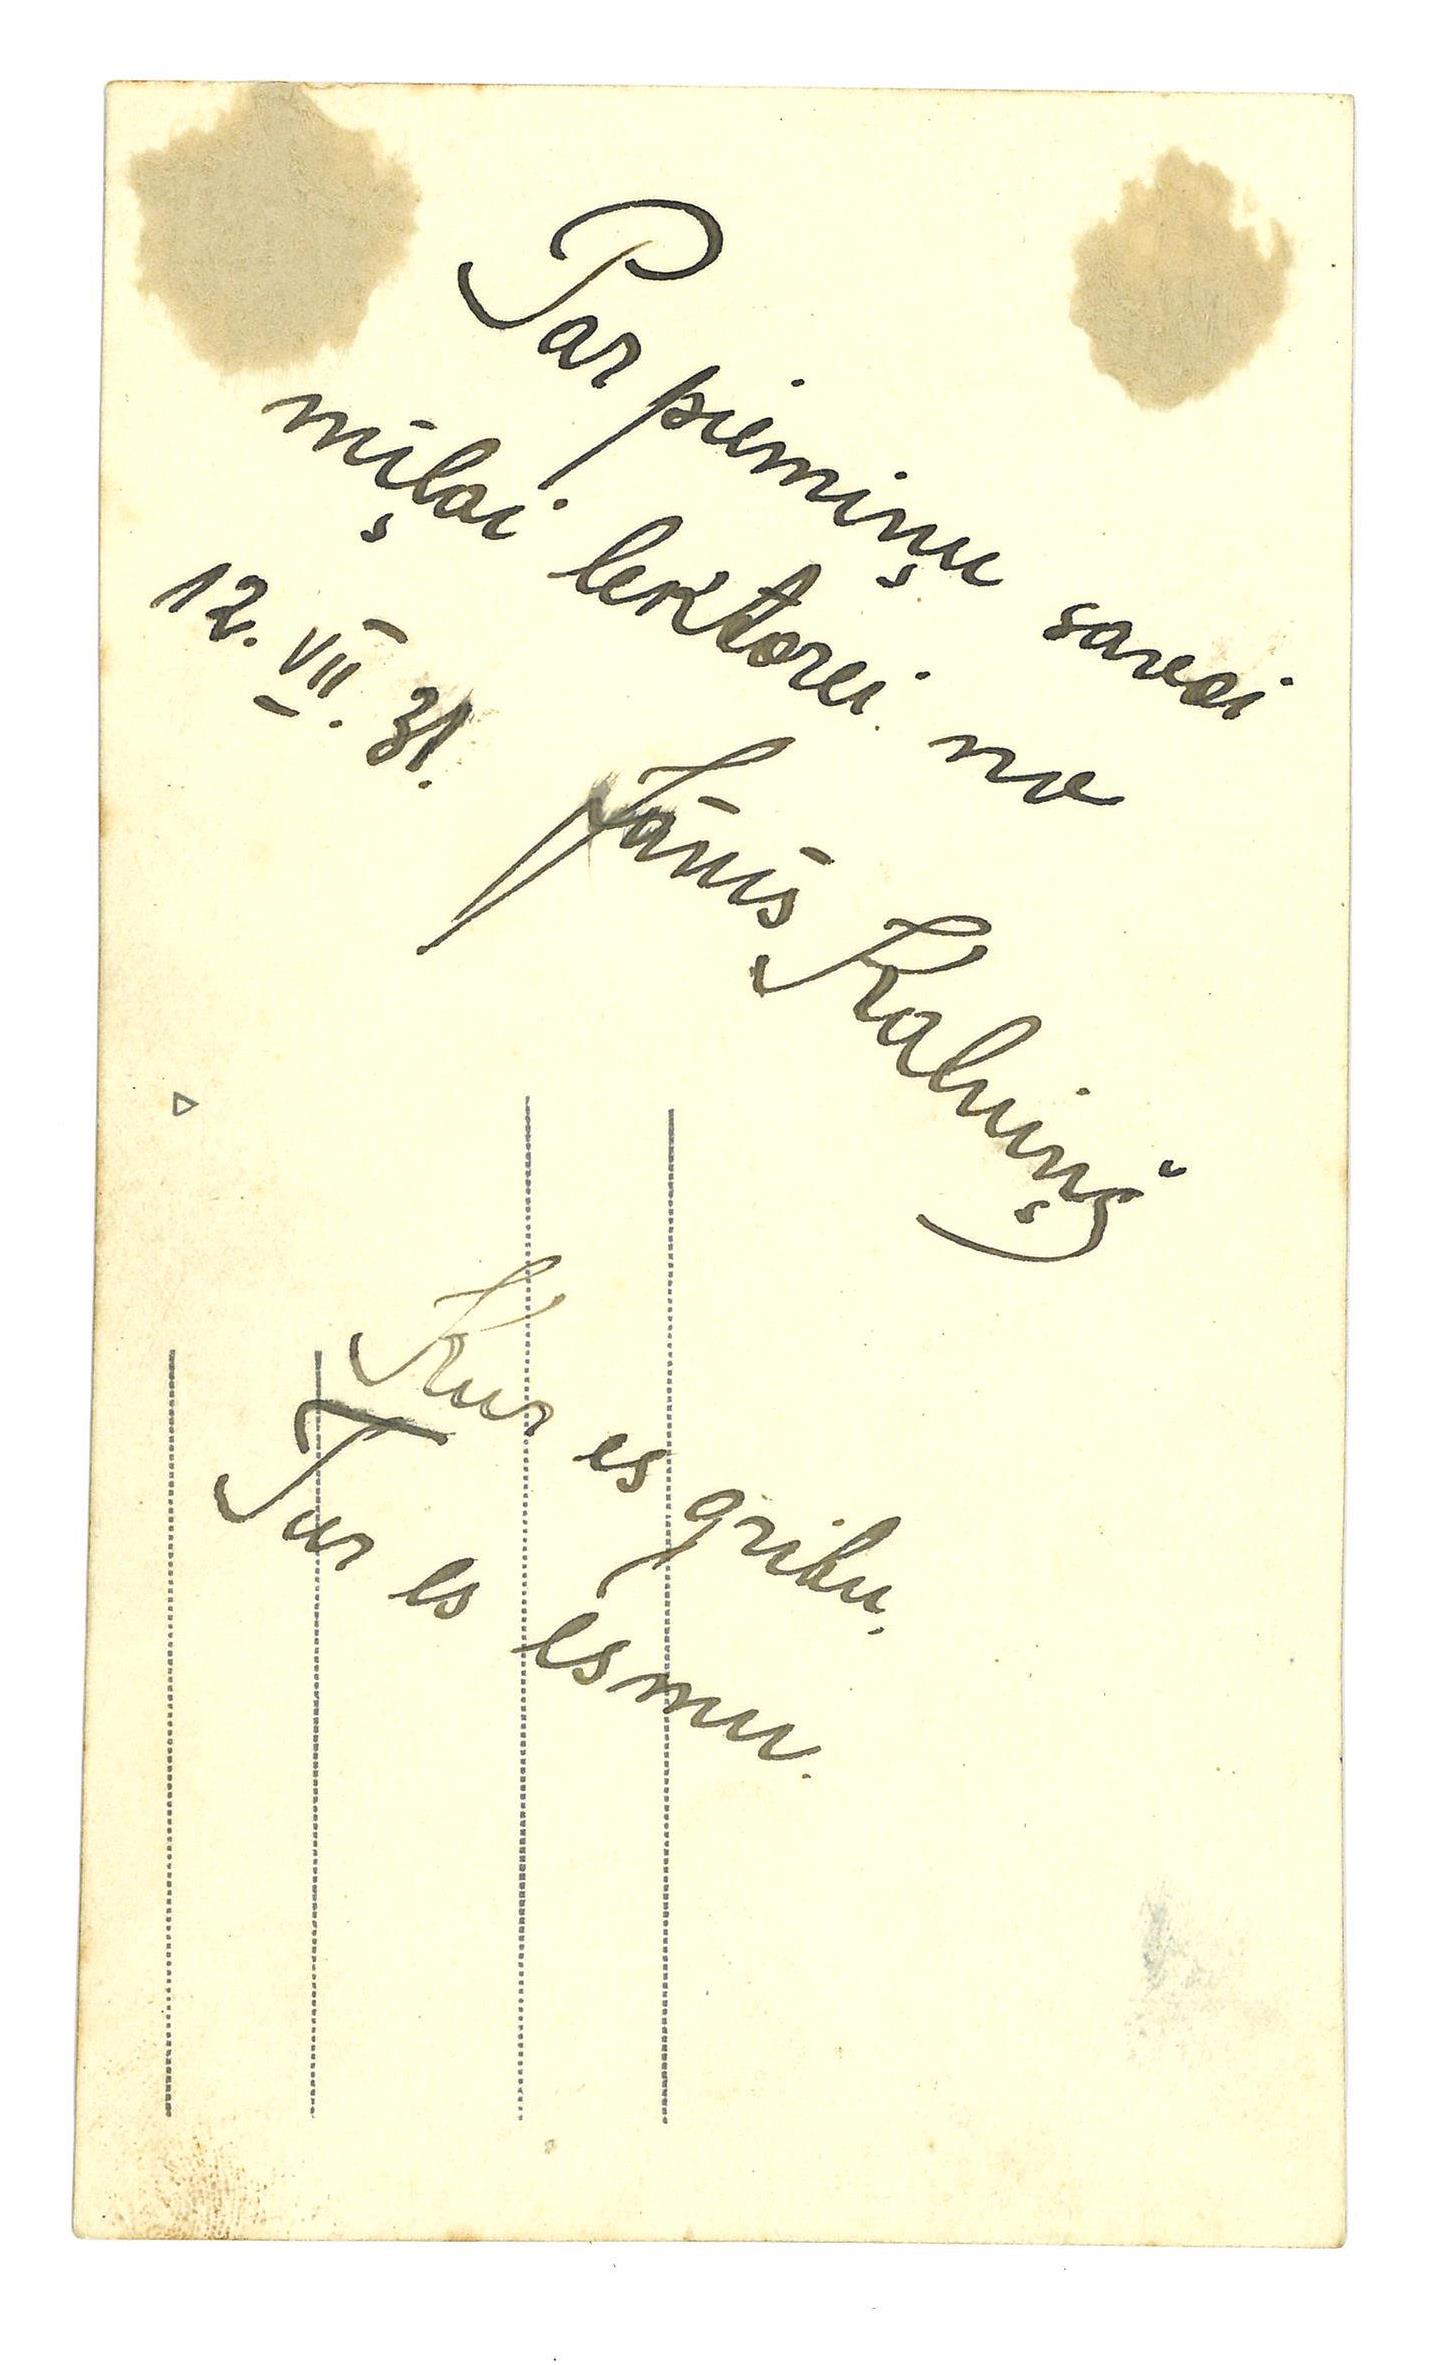 Par piemiņu savai
mīļai lektorei no
12. VII. 31. Jānis Kalniņš
Kur es gribu,
Tur es esmu.